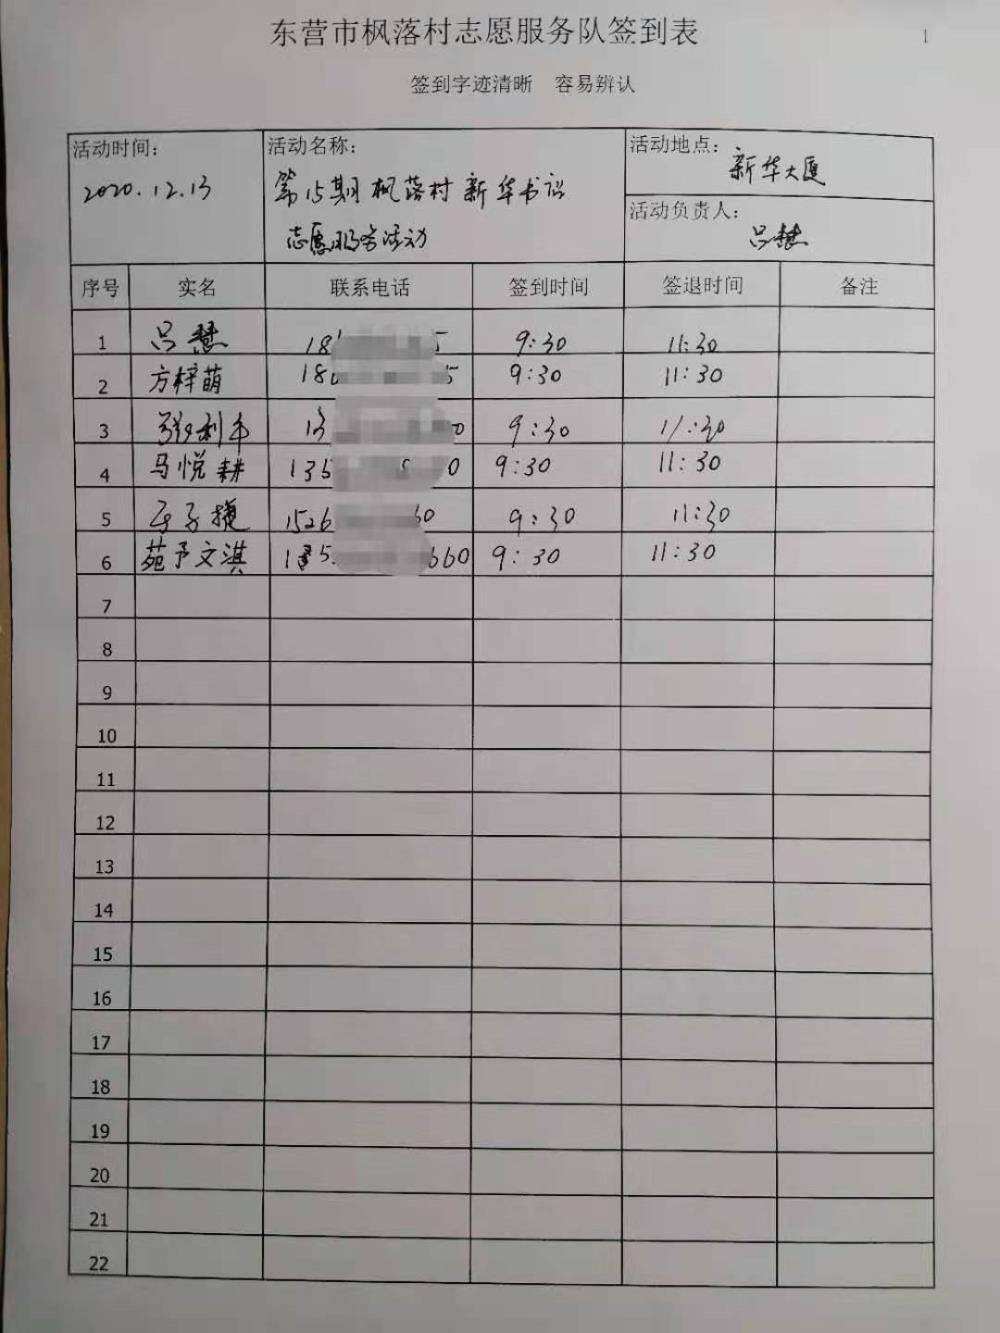 东营市枫落村志愿服务队签到表
1
签到字迹清晰 容易辨认
活动时间：
2020.12.13
活动名称：
第15期枫落村新华书
志愿服务活动
活动地点：
新华大厦
活动负责人：
吕慧
序号 实名 联系电话 签到时间 签退时间 备注
1 吕慧 18 5 9:30 11:30
2 方梓萌 18 5 9:30 11:30
3 13 0 9:30 11:30
4 马悦耕 135 0 9:30 11:30
5 子捷 1526 60 9:30 11:30
6 苑予文淇 1 5 660 9:30 11:30
7
8
9
10
11
12
13
14
15
16
17
18
19
20
21
22